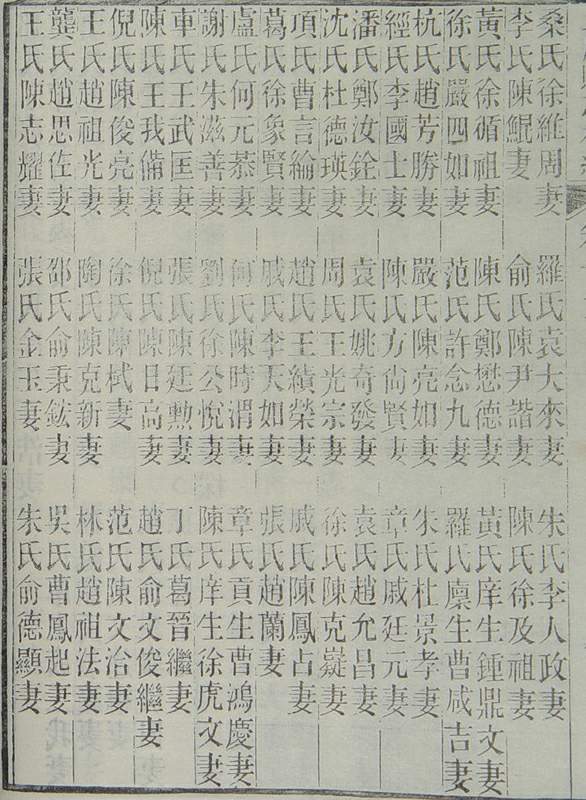 桑氏徐維周妻 羅氏袁大來妻 朱氏李人政妻
李氏陳鯤妻 俞氏陳尹諧妻 陳氏徐及祖妻
黃氏徐循祖妻 陳氏鄭懋德妻 黃氏庠生鍾鼎文妻
徐氏嚴四如妻 范氏許念九妻 羅氏廩生曹咸吉妻
杭氏趙芳勝妻 嚴氏陳亮如妻 朱氏杜景孝妻
經氏李國士妻 陳氏方尚賢妻 章氏戚廷元妻
潘氏鄭汝銓妻 袁氏姚奇發妻 袁氏趙允昌妻
沈氏杜德瑛妻 周氏王光宗妻 徐氏陳克嶷妻
項氏曹言綸妻 趙氏王績榮妻 戚氏陳鳳占妻
葛氏徐象賢妻 戚氏李天如妻 張氏趙蘭妻
盧氏何元恭妻 何氏陳時渭妻 章氏貢生曹鴻慶妻
謝氏朱滋善妻 劉氏徐公悅妻 陳氏庠生徐虎文妻
車氏王武匡妻 張氏陳廷勳妻 丁氏葛晉繼妻
陳氏王我備妻 倪氏陳日高妻 趙氏俞文俊繼妻
倪氏陳俊亮妻 徐氏陳栻妻 范氏陳文治妻
王氏趙祖光妻 陶氏陳克新妻 林氏趙祖法妻
龔氏趙思佐妻 邵氏俞秉鋐妻 吳氏曹鳳起妻
王氏陳志耀妻 張氏金玉妻 朱氏俞德顯妻